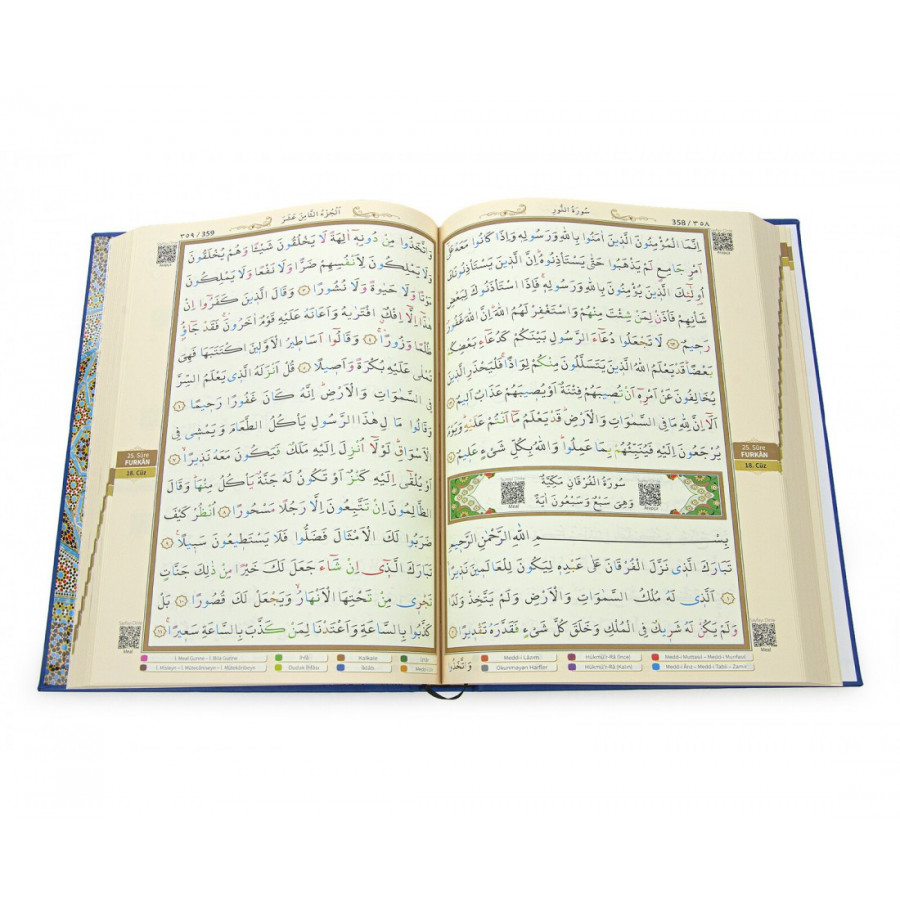 سُورَةُ النُّورِ
358 / ٣٥٨
اِنَّمَا الْمُؤْمِنُونَ الَّذٖينَ اٰمَنُوا بِاللّٰهِ وَرَسُولِهٖ وَاِذَا كَانُوا مَعَهُ عَلٰٓى
اَمْرٍ جَامِعٍ لَمْ يَذْهَبُوا حَتّٰى يَسْتَاْذِنُوهُ اِنَّ الَّذٖينَ يَسْتَاْذِنُونَكَ
اُولٰٓئِكَ الَّذٖينَ يُؤْمِنُونَ بِاللّٰهِ وَرَسُولِهٖ فَاِذَا اسْتَاْذَنُوكَ لِبَعْضِ
شَاْنِهِمْ فَاْذَنْ لِمَنْ شِئْتَ مِنْهُمْ وَاسْتَغْفِرْ لَهُمُ اللّٰهَ اِنَّ اللّٰهَ غَفُورٌ
رَحٖيمٌ لَا تَجْعَلُوا دُعَٓاءَ الرَّسُولِ بَيْنَكُمْ كَدُعَٓاءِ بَعْضِكُمْ
بَعْضًا قَدْ يَعْلَمُ اللّٰهُ الَّذٖينَ يَتَسَلَّلُونَ مِنْكُمْ لِوَاذًا فَلْيَحْذَرِ الَّذٖينَ
يُخَالِفُونَ عَنْ اَمْرِهٖٓ اَنْ تُصٖيبَهُمْ فِتْنَةٌ اَوْ يُصٖيبَهُمْ عَذَابٌ اَلٖيمٌ
اَلَٓا اِنَّ لِلّٰهِ مَا فِي السَّمٰوَاتِ وَالْاَرْضِ قَدْ يَعْلَمُ مَٓا اَنْتُمْ عَلَيْهِ وَيَوْمَ
يُرْجَعُونَ اِلَيْهِ فَيُنَبِّئُهُمْ بِمَا عَمِلُوا وَاللّٰهُ بِكُلِّ شَيْءٍ عَلٖيمٌ
سُورَةُ الْفُرْقَانِ مَكِّيَّةٌ
وَهِيَ سَبْعٌ وَسَبْعُونَ اٰيَةً
بِسْمِ اللّٰهِ الرَّحْمٰنِ الرَّحٖيمِ
تَبَارَكَ الَّذٖي نَزَّلَ الْفُرْقَانَ عَلٰى عَبْدِهٖ لِيَكُونَ لِلْعَالَمٖينَ نَذٖيرًا
اَلَّذٖي لَهُ مُلْكُ السَّمٰوَاتِ وَالْاَرْضِ وَلَمْ يَتَّخِذْ وَلَدًا
وَلَمْ يَكُنْ لَهُ شَرٖيكٌ فِي الْمُلْكِ وَخَلَقَ كُلَّ شَيْءٍ فَقَدَّرَهُ تَقْدٖيرًا
وَاتَّخَذُوا
25. Sûre
FURKÂN
18. Cüz
Meal
Medd-i Lâzım
Hükmü'r-Râ (İnce)
Medd-i Muttasıl – Medd-i Munfasıl
Okunmayan Harfler
Hükmü'r-Râ (Kalın)
Medd-i Ârız – Medd-i Tabii – Zamir
اَلْجُزْءُ الثَّامِنَ عَشَرَ
٣٥٩ / 359
وَاتَّخَذُوا مِنْ دُونِهٖٓ اٰلِهَةً لَا يَخْلُقُونَ شَيْـًٔا وَهُمْ يُخْلَقُونَ
وَلَا يَمْلِكُونَ لِاَنْفُسِهِمْ ضَرًّا وَلَا نَفْعًا وَلَا يَمْلِكُونَ
مَوْتًا وَلَا حَيٰوةً وَلَا نُشُورًا وَقَالَ الَّذٖينَ كَفَرُٓوا اِنْ
هٰذَٓا اِلَّٓا اِفْكٌ افْتَرٰيهُ وَاَعَانَهُ عَلَيْهِ قَوْمٌ اٰخَرُونَ فَقَدْ جَٓاؤُ
ظُلْمًا وَزُورًا وَقَالُٓوا اَسَاطٖيرُ الْاَوَّلٖينَ اكْتَتَبَهَا فَهِيَ
تُمْلٰى عَلَيْهِ بُكْرَةً وَاَصٖيلًا قُلْ اَنْزَلَهُ الَّذٖي يَعْلَمُ السِّرَّ
فِي السَّمٰوَاتِ وَالْاَرْضِ اِنَّهُ كَانَ غَفُورًا رَحٖيمًا
وَقَالُوا مَا لِ هٰذَا الرَّسُولِ يَاْكُلُ الطَّعَامَ وَيَمْشٖي فِي
الْاَسْوَاقِ لَوْلَٓا اُنْزِلَ اِلَيْهِ مَلَكٌ فَيَكُونَ مَعَهُ نَذٖيرًا
اَوْ يُلْقٰٓى اِلَيْهِ كَنْزٌ اَوْ تَكُونُ لَهُ جَنَّةٌ يَاْكُلُ مِنْهَا وَقَالَ
الظَّالِمُونَ اِنْ تَتَّبِعُونَ اِلَّا رَجُلًا مَسْحُورًا اُنْظُرْ كَيْفَ
ضَرَبُوا لَكَ الْاَمْثَالَ فَضَلُّوا فَلَا يَسْتَطٖيعُونَ سَبٖيلًا
تَبَارَكَ الَّذٖٓي اِنْ شَٓاءَ جَعَلَ لَكَ خَيْرًا مِنْ ذٰلِكَ جَنَّاتٍ
تَجْرٖي مِنْ تَحْتِهَا الْاَنْهَارُ وَيَجْعَلْ لَكَ قُصُورًا بَلْ
كَذَّبُوا بِالسَّاعَةِ وَاَعْتَدْنَا لِمَنْ كَذَّبَ بِالسَّاعَةِ سَعٖيرًا
25. Sûre
FURKÂN
18. Cüz
Meal
İ. Meal Gunne – İ. Bila Gunne
İhfâ
Kalkale
İ. Miseyn – İ. Mütecâniseyn – İ. Mütekâribeyn
Dudak İhfâsı
İklâb